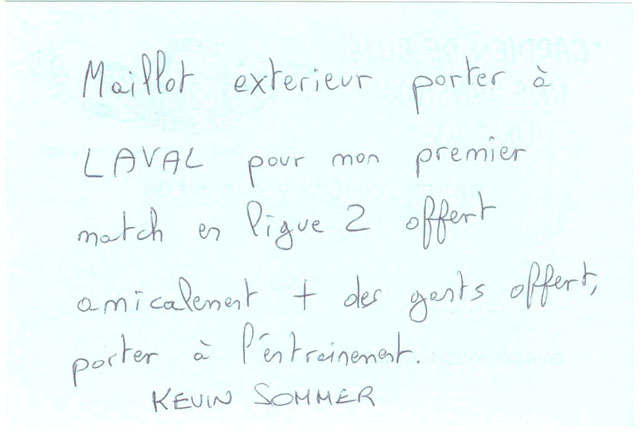 Maillot exterieur porter à
LAVAL pour mon premier
match en ligue 2 offert
amicalement + des gants offert,
porter à l'entrainement.
KEVIN SOMMER